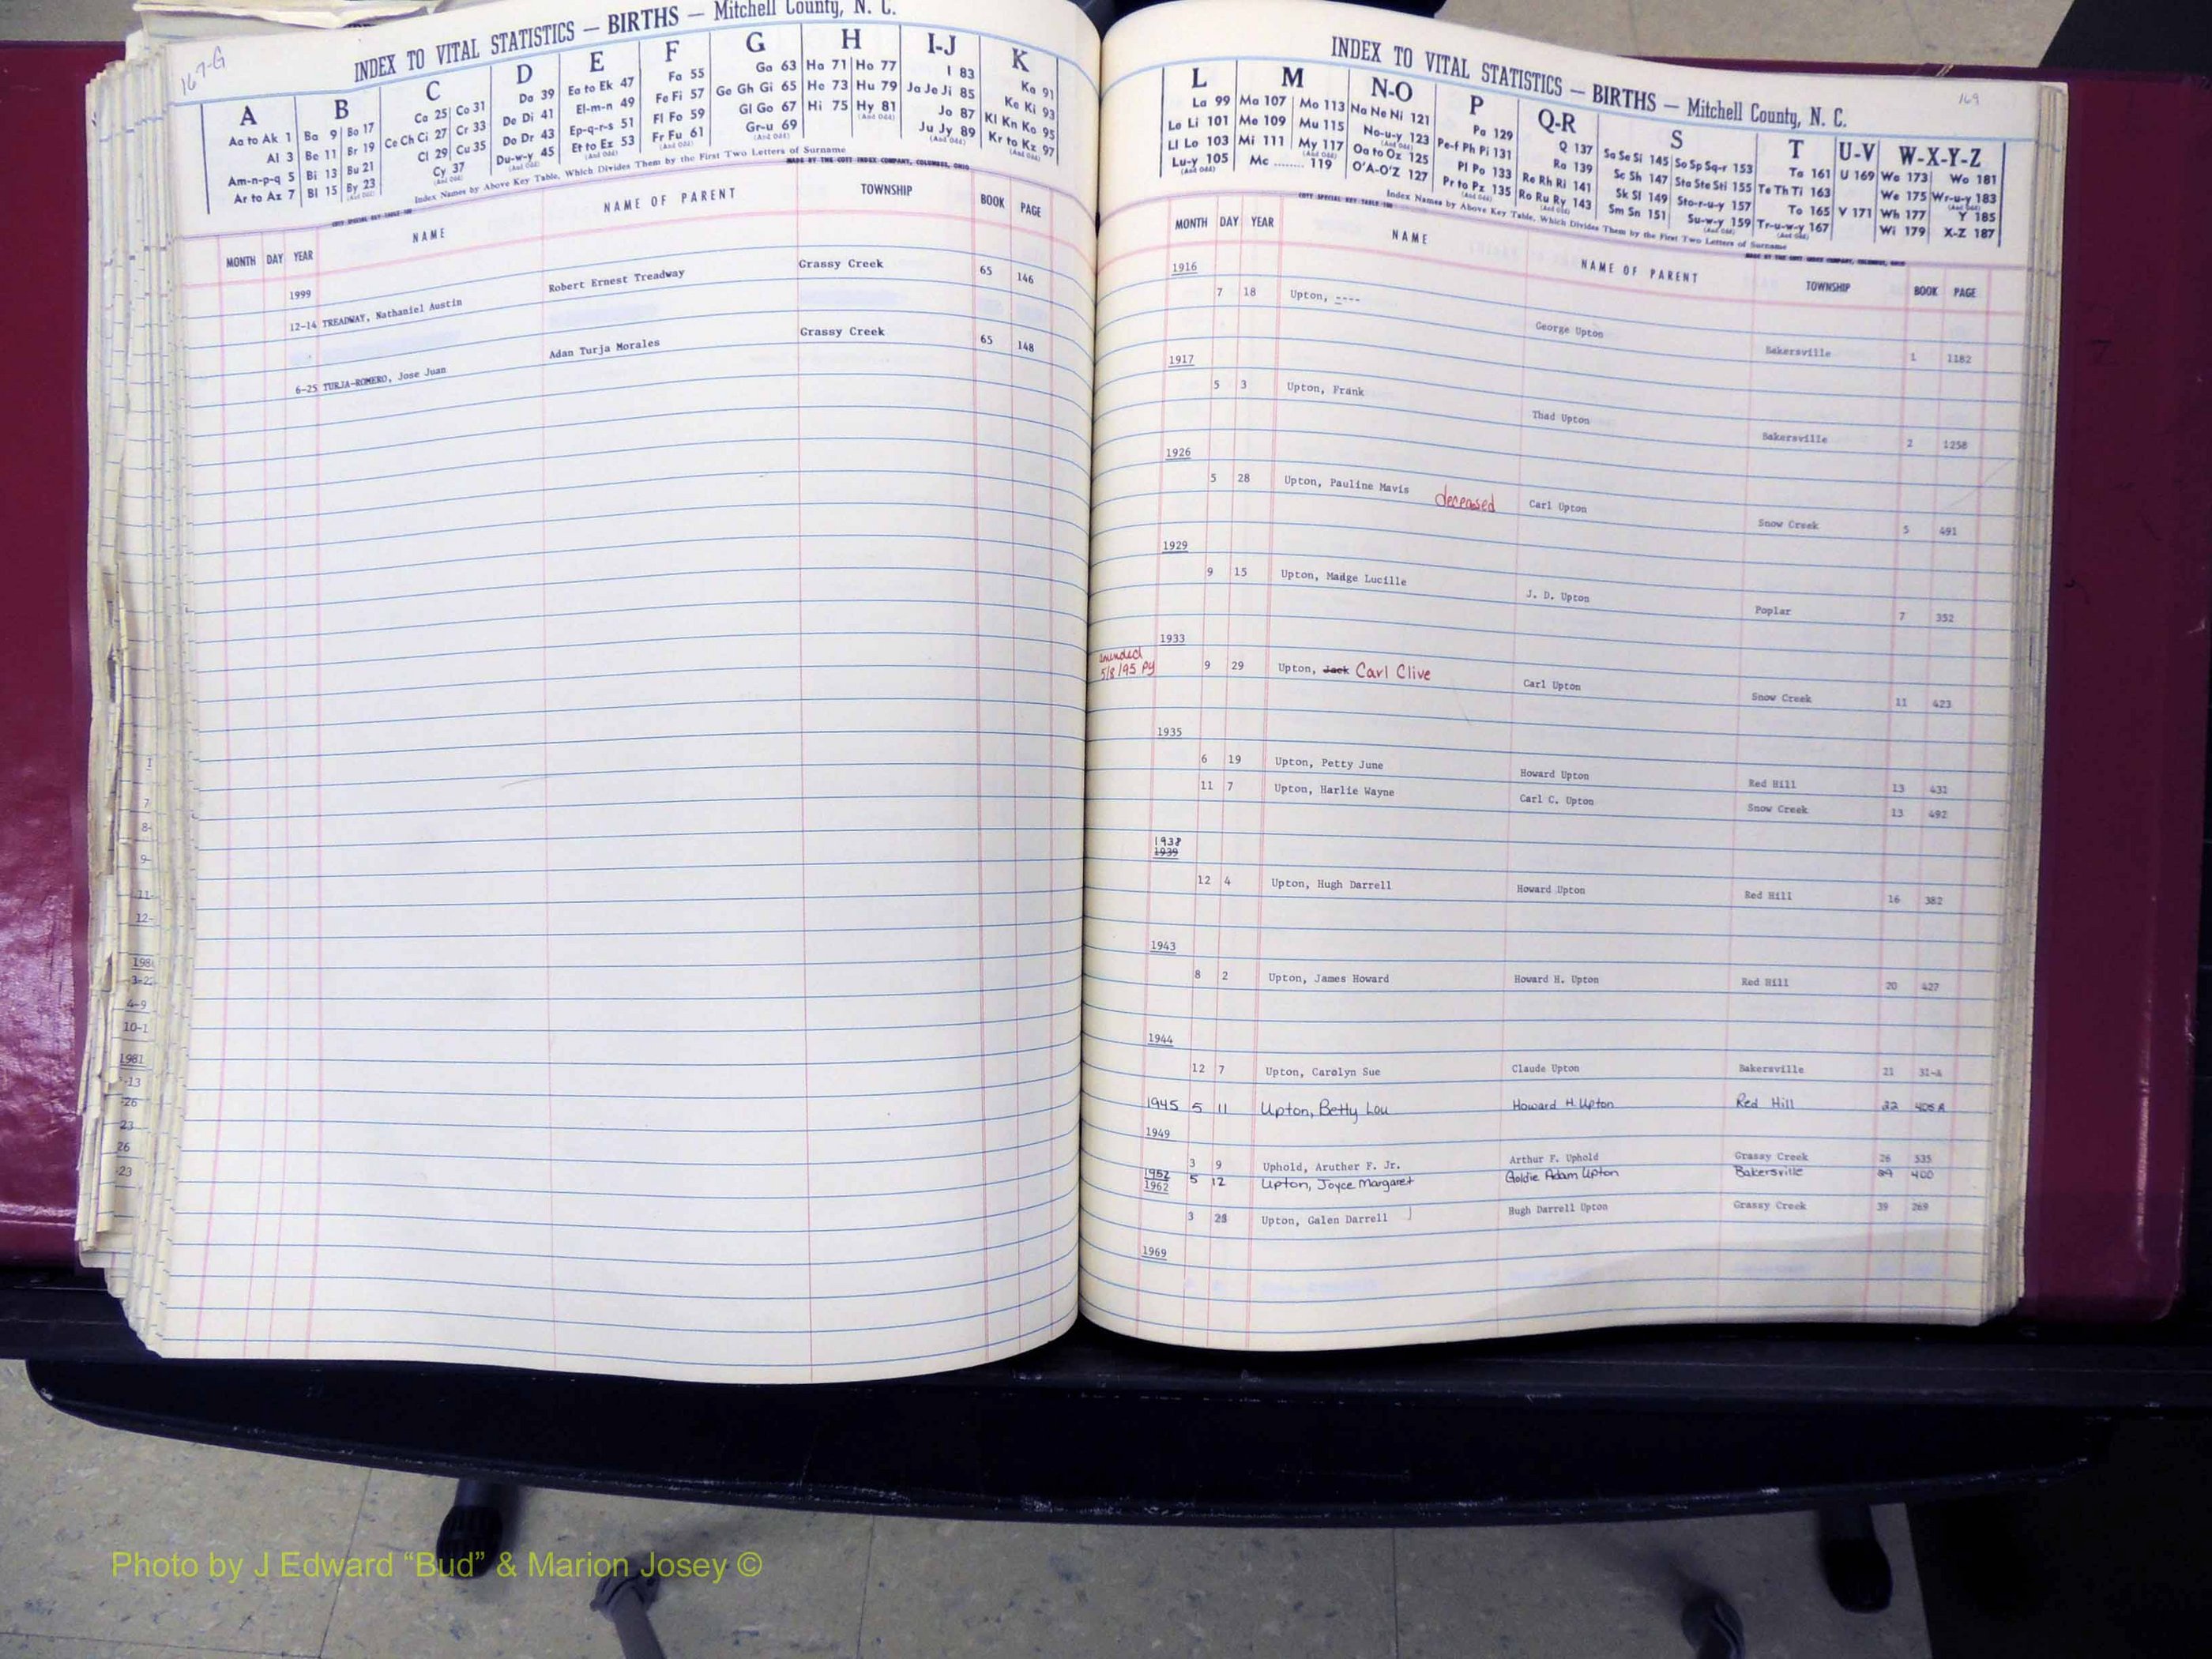 167-G
INDEX TO VITAL STATISTICS — BIRTHS — Mitchell County, N. C.
A B C D E F G H I-J K
Aa to Ak 1 Ba 9 Bo 17 Ca 25 Co 31 Da 39 Ea to Ek 47 Fa 55 Ga 63 Ha 71 Ho 77 I 83 Ka 91
Al 3 Be 11 Br 19 Ce Ch Ci 27 Cr 33 De Di 41 El-m-n 49 Fe Fi 57 Ge Gh Gi 65 He 73 Hu 79 Ja Je Ji 85 Ke Ki 93
Am-n-p-q 5 Bi 13 Bu 21 Cl 29 Cu 35 Do Dr 43 Ep-q-r-s 51 Fl Fo 59 Gl Go 67 Hi 75 Hy 81 Jo 87 Kl Kn Ko 95
Ar to Az 7 Bl 15 By 23 Cy 37 Du-w-y 45 Et to Ez 53 Fr Fu 61 Gr-u 69 Ju Jy 89 Kr to Kz 97
Index Names by Above Key Table, Which Divides Them by the First Two Letters of Surname
MADE BY THE COTT INDEX COMPANY, COLUMBUS, OHIO
MONTH DAY YEAR NAME NAME OF PARENT TOWNSHIP BOOK PAGE
1999
12-14 TREADWAY, Nathaniel Austin Robert Ernest Treadway Grassy Creek 65 146
6-25 TURJA-ROMERO, Jose Juan Adan Turja Morales Grassy Creek 65 148
1
7
8-
9-
11-
12-
3-22
4-9
10-1
1981
-13
-26
23
26
-23
169
INDEX TO VITAL STATISTICS — BIRTHS — Mitchell County, N. C.
L M N-O P Q-R S T U-V W-X-Y-Z
La 99 Ma 107 Mo 113 Na Ne Ni 121 Pa 129 Q 137 Sa Se Si 145 So Sp Sq-r 153 Ta 161 U 169 Wa 173 Wo 181
Le Li 101 Me 109 Mu 115 No-u-y 123 Pe-f Ph Pi 131 Ra 139 Sc Sh 147 Sta Ste Sti 155 Te Th Ti 163 We 175 Wr-u-y 183
Ll Lo 103 Mi 111 My 117 Oa to Oz 125 Pl Po 133 Re Rh Ri 141 Sk Sl 149 Sto-r-u-y 157 To 165 V 171 Wh 177 Y 185
Lu-y 105 Mc ........ 119 O'A-O'Z 127 Pr to Pz 135 Ro Ru Ry 143 Sm Sn 151 Su-w-y 159 Tr-u-w-y 167 Wi 179 X-Z 187
Index Names by Above Key Table, Which Divides Them by the First Two Letters of Surname
MONTH DAY YEAR NAME NAME OF PARENT TOWNSHIP BOOK PAGE
1916
7 18 Upton, ---- George Upton Bakersville 1 1182
1917
5 3 Upton, Frank Thad Upton Bakersville 2 1258
1926
5 28 Upton, Pauline Mavis deceased Carl Upton Snow Creek 5 491
1929
9 15 Upton, Madge Lucille J. D. Upton Poplar 7 352
1933
amended
5/8/95 Pg
9 29 Upton, Jack Carl Clive Carl Upton Snow Creek 11 423
1935
6 19 Upton, Petty June Howard Upton Red Hill 13 431
11 7 Upton, Harlie Wayne Carl C. Upton Snow Creek 13 492
1938
1939
12 4 Upton, Hugh Darrell Howard Upton Red Hill 16 382
1943
8 2 Upton, James Howard Howard H. Upton Red Hill 20 427
1944
12 7 Upton, Carolyn Sue Claude Upton Bakersville 21 31-A
1945 5 11 Upton, Betty Lou Howard H. Upton Red Hill 22 405A
1949
3 9 Uphold, Aruther F. Jr. Arthur F. Uphold Grassy Creek 26 535
1952 5 12 Upton, Joyce Margaret Goldie Adam Upton Bakersville 29 400
1962
3 28 Upton, Galen Darrell Hugh Darrell Upton Grassy Creek 39 269
1969
Photo by J Edward “Bud” & Marion Josey ©